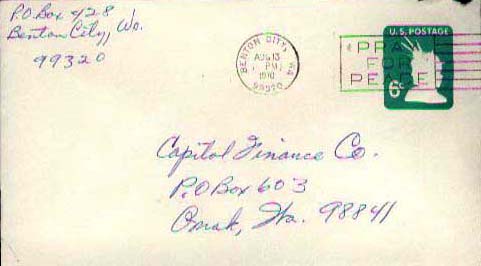 P.O. Box 428
Benton City, Wa.
99320
BENTON CITY, WA
AUG 13
PM
1970
99320
PRAY
FOR
PEACE
U.S. POSTAGE
6¢
Capitol Finance Co.
P.O Box 603
Omak, Wa. 98841